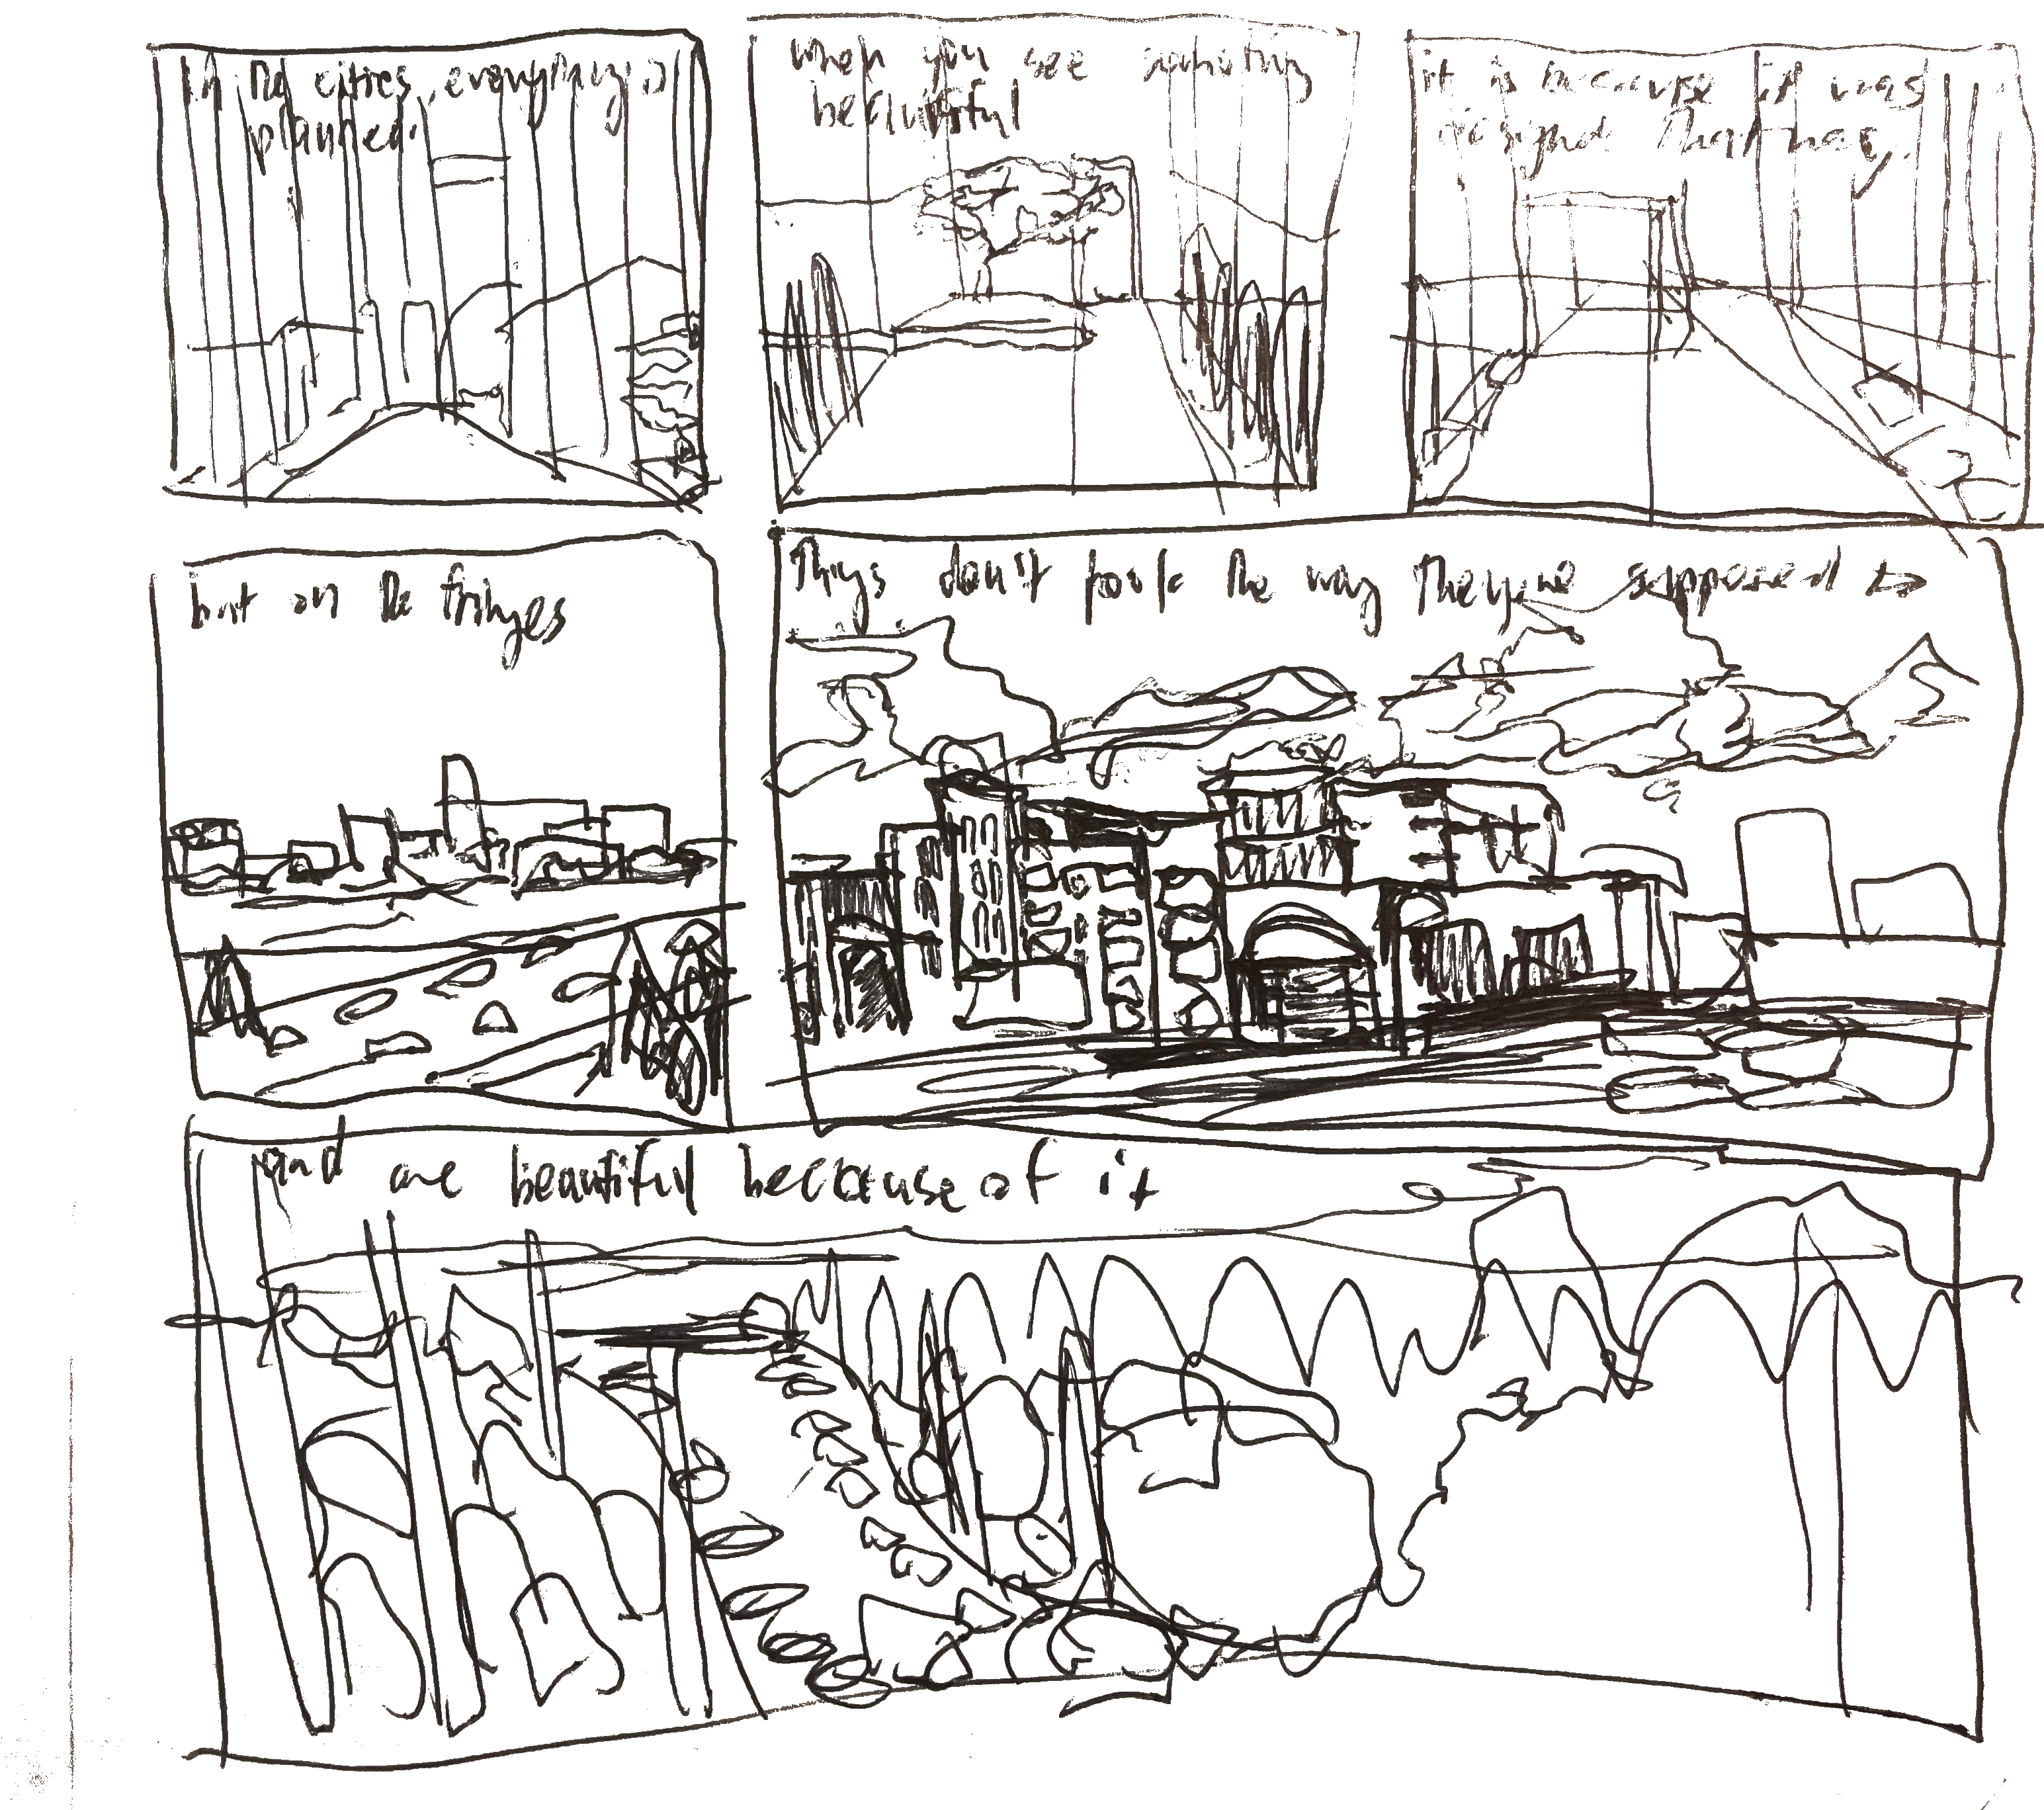 In the cities, everything is
planned.
when you see something
beautiful
it is because it was
designed that way.
but on the fringes
Things don't look the way they're supposed to
and are beautiful because of it